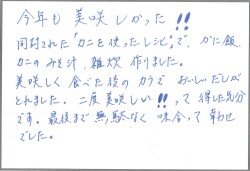 今年も 美味しかった!!
同封された「カニを使ったレシピ」で、かに飯
カニのみそ汁、雑炊 作りました。
美味しく食べた後のカラで おいしいだしが
とれました。二度美味しい!!って得した気分
です。最後まで無駄なく 味合って幸せ
でした。